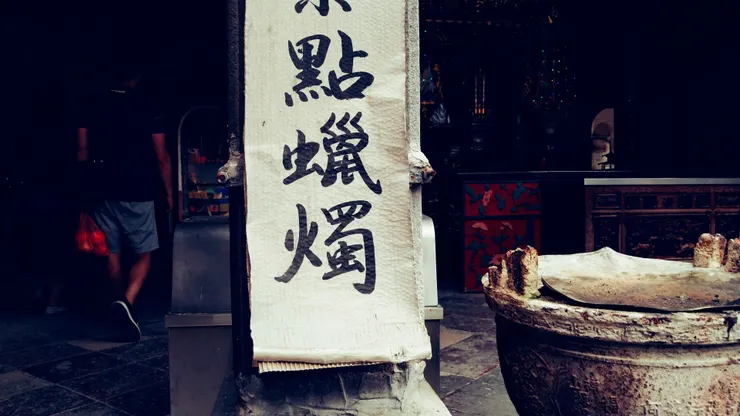 點蠟燭